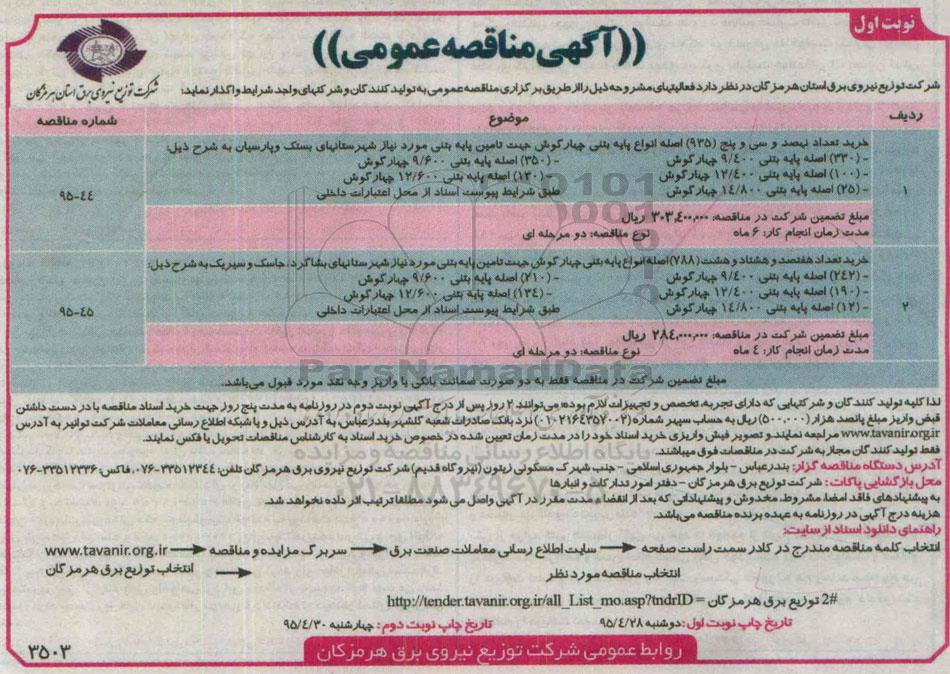 نوبت اول
((آگهی مناقصه عمومی))
شرکت توزیع نیروی برق استان هرمزگان
شرکت توزیع نیروی برق استان هرمزگان در نظر دارد فعالیتهای مشروحه ذیل را از طریق برگزاری مناقصه عمومی به تولید کنندگان و شرکتهای واجد شرایط واگذار نماید:
ردیف موضوع شماره مناقصه
خرید تعداد نهصد و سی و پنج (۹۳۵) اصله انواع پایه بتنی چهارگوش جهت تامین پایه بتنی مورد نیاز شهرستانهای بستک و پارسیان به شرح ذیل:
- (۳۳۰) اصله پایه بتنی ۹/۴۰۰ چهارگوش - (۳۵۰) اصله پایه بتنی ۹/۶۰۰ چهارگوش
- (۱۰۰) اصله پایه بتنی ۱۲/۴۰۰ چهارگوش - (۱۳۰) اصله پایه بتنی ۱۲/۶۰۰ چهارگوش
- (۲۵) اصله پایه بتنی ۱۴/۸۰۰ چهارگوش طبق شرایط پیوست اسناد از محل اعتبارات داخلی
۱ ۹۵-۴۴
مبلغ تضمین شرکت در مناقصه: ۳۰۳,۴۰۰,۰۰۰ ریال
مدت زمان انجام کار: ۶ ماه نوع مناقصه: دو مرحله ای
خرید تعداد هفتصد و هشتاد و هشت (۷۸۸) اصله انواع پایه بتنی چهارگوش جهت تامین پایه بتنی مورد نیاز شهرستانهای بشاگرد، جاسک و سیریک به شرح ذیل:
- (۲۴۲) اصله پایه بتنی ۹/۴۰۰ چهارگوش - (۲۱۰) اصله پایه بتنی ۹/۶۰۰ چهارگوش
- (۱۹۰) اصله پایه بتنی ۱۲/۴۰۰ چهارگوش - (۱۳۴) اصله پایه بتنی ۱۲/۶۰۰ چهارگوش
- (۱۲) اصله پایه بتنی ۱۴/۸۰۰ چهارگوش طبق شرایط پیوست اسناد از محل اعتبارات داخلی
۲ ۹۵-۴۵
مبلغ تضمین شرکت در مناقصه: ۲۸۴,۰۰۰,۰۰۰ ریال
مدت زمان انجام کار: ۴ ماه نوع مناقصه: دو مرحله ای
ParsNamadData
مبلغ تضمین شرکت در مناقصه فقط به دو صورت ضمانت بانکی یا واریز وجه نقد مورد قبول می‌باشد.
لذا کلیه تولید کنندگان و شرکتهایی که دارای تجربه، تخصص و تجهیزات لازم بوده می‌توانند ۲ روز پس از درج آگهی نوبت دوم در روزنامه به مدت پنج روز جهت خرید اسناد مناقصه با در دست داشتن
قبض واریز مبلغ پانصد هزار (۵۰۰,۰۰۰) ریال به حساب سپهر شماره (۰۱۰۲۱۶۴۳۵۲۰۰۲) نزد بانک صادرات شعبه گلشهر بندرعباس، به آدرس ذیل و یا شبکه اطلاع رسانی معاملات شرکت توانیر به آدرس
www.tavanir.org.ir مراجعه نمایند و تصویر فیش واریزی خرید اسناد خود را در مدت زمان تعیین شده در خصوص خرید اسناد به کارشناس مناقصات تحویل یا فکس نمایند.
فقط تولید کنندگان مجاز به شرکت در مناقصات فوق میباشند.
پایگاه اطلاع رسانی مناقصه و مزایده
آدرس دستگاه مناقصه گزار: بندرعباس - بلوار جمهوری اسلامی - جنب شهرک مسکونی زیتون (نیروگاه قدیم) شرکت توزیع نیروی برق هرمزگان تلفن: ۳۳۵۱۲۳۴۴-۰۷۶، فاکس: ۳۳۵۱۲۳۳۶-۰۷۶
محل بازگشایی پاکات: شرکت توزیع برق هرمزگان - دفتر امور تدارکات و انبارها
به پیشنهادهای فاقد امضا، مشروط، مخدوش و پیشنهاداتی که بعد از انقضاء مدت مقرر در آگهی واصل می شود مطلقا ترتیب اثر داده نخواهد شد.
هزینه درج آگهی در روزنامه به عهده برنده مناقصه می‌باشد.
راهنمای دانلود اسناد از سایت:
انتخاب کلمه مناقصه مندرج در کادر سمت راست صفحه سایت اطلاع رسانی معاملات صنعت برق سربرگ مزایده و مناقصه www.tavanir.org.ir
انتخاب مناقصه مورد نظر انتخاب توزیع برق هرمزگان
http://tender.tavanir.org.ir/all_List_mo.asp?tndrID = توزیع برق هرمزگان 2#
تاریخ چاپ نوبت اول: دوشنبه ۹۵/۴/۲۸ تاریخ چاپ نوبت دوم: چهارشنبه ۹۵/۴/۳۰
روابط عمومی شرکت توزیع نیروی برق هرمزگان
۳۵۰۳